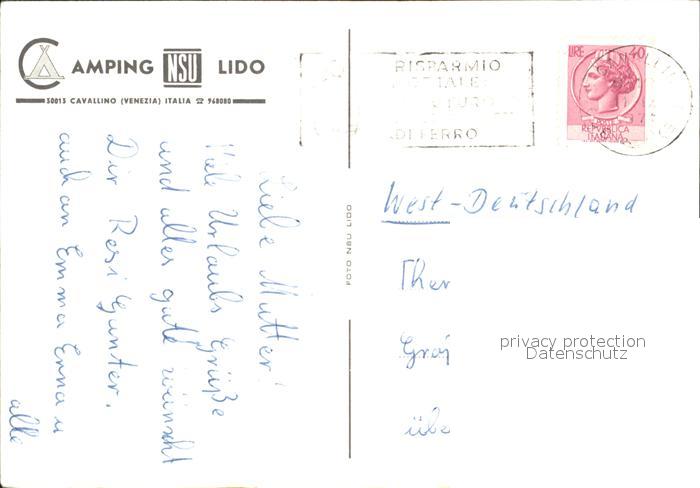 CAMPING NSU LIDO
50013 CAVALLINO (VENEZIA) ITALIA ☎ 968080
Liebe Mutter!
Viele Urlaubs Grüße
und alles gute wünscht
Dir Resi Günter.
auch an Emma Erna u
alle
FOTO NSU LIDO
RISPARMIO
DI FERRO
LIRE 40
POSTE
REPVBBLICA
ITALIANA
West-Deutschland
Ther
Graj
übe
privacy protection
Datenschutz